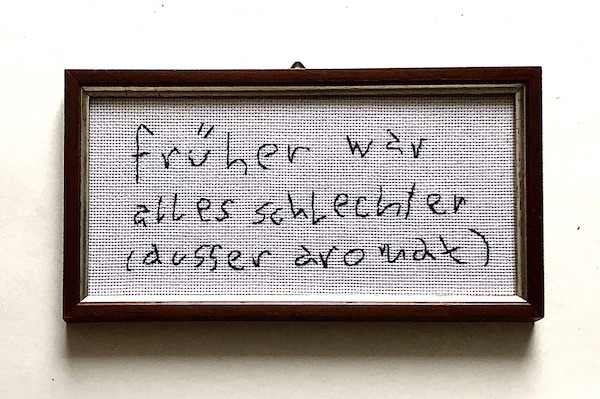 früher war
alles schlechter
(ausser aromat)